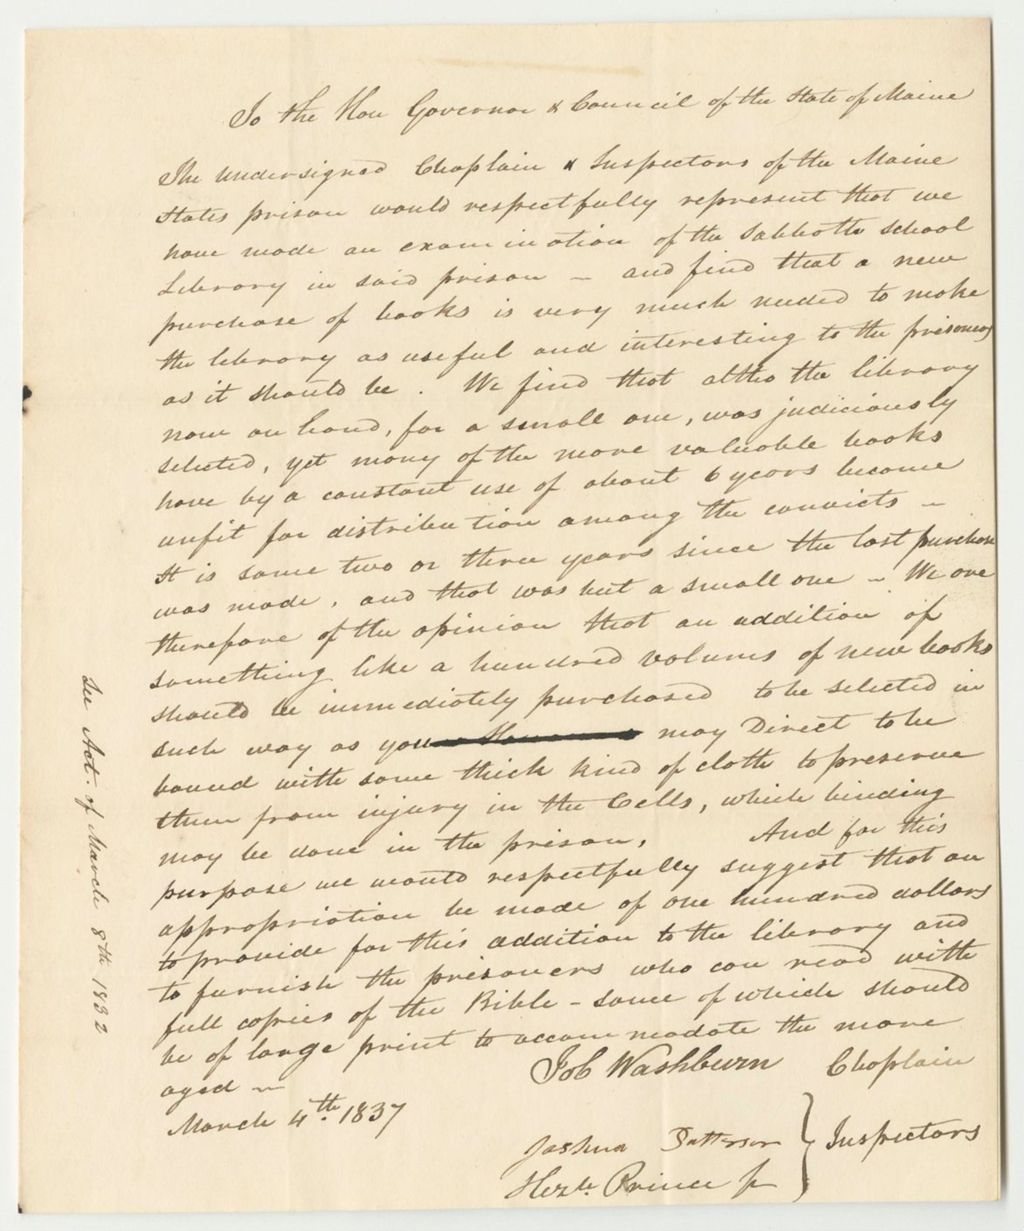 To the Hon Governor & Council of the State of Maine
The undersigned Chaplain & Inspectors of the Maine
States prison would respectfully represent that we
have made an examination of the Sabboth School
Library in said prison – and find that a new
purchase of books is very much needed to make
the library as useful and interesting to the prisoners
as it should be. We find that altho the library
now on hand, for a small one, was judiciously
selected, yet many of the more valuable books
have by a constant use of about 6 years become
unfit for distribution among the convicts –
It is some two or three years since the last purchase
was made, and that was but a small one – We are
therefore of the opinion that an addition of
something like a hundred volums of new books
should be immediately purchased to be selected in
such way as you may Direct to be
bound with some thick kind of cloth to preserve
them from injury in the Cells, which binding
may be done in the prison, And for this
purpose we would respectfully suggest that an
appropriation be made of one hundred dollars
to provide for this addition to the library and
to furnish the prisoners who can read with
full copies of the Bible – some of which should
be of large print to accommodate the more
aged –
Job Washburn Chaplain
March 4th 1837
Joshua Patterson
Hezh. Prince Jr
Inspectors
See Act. of March 8th 1832